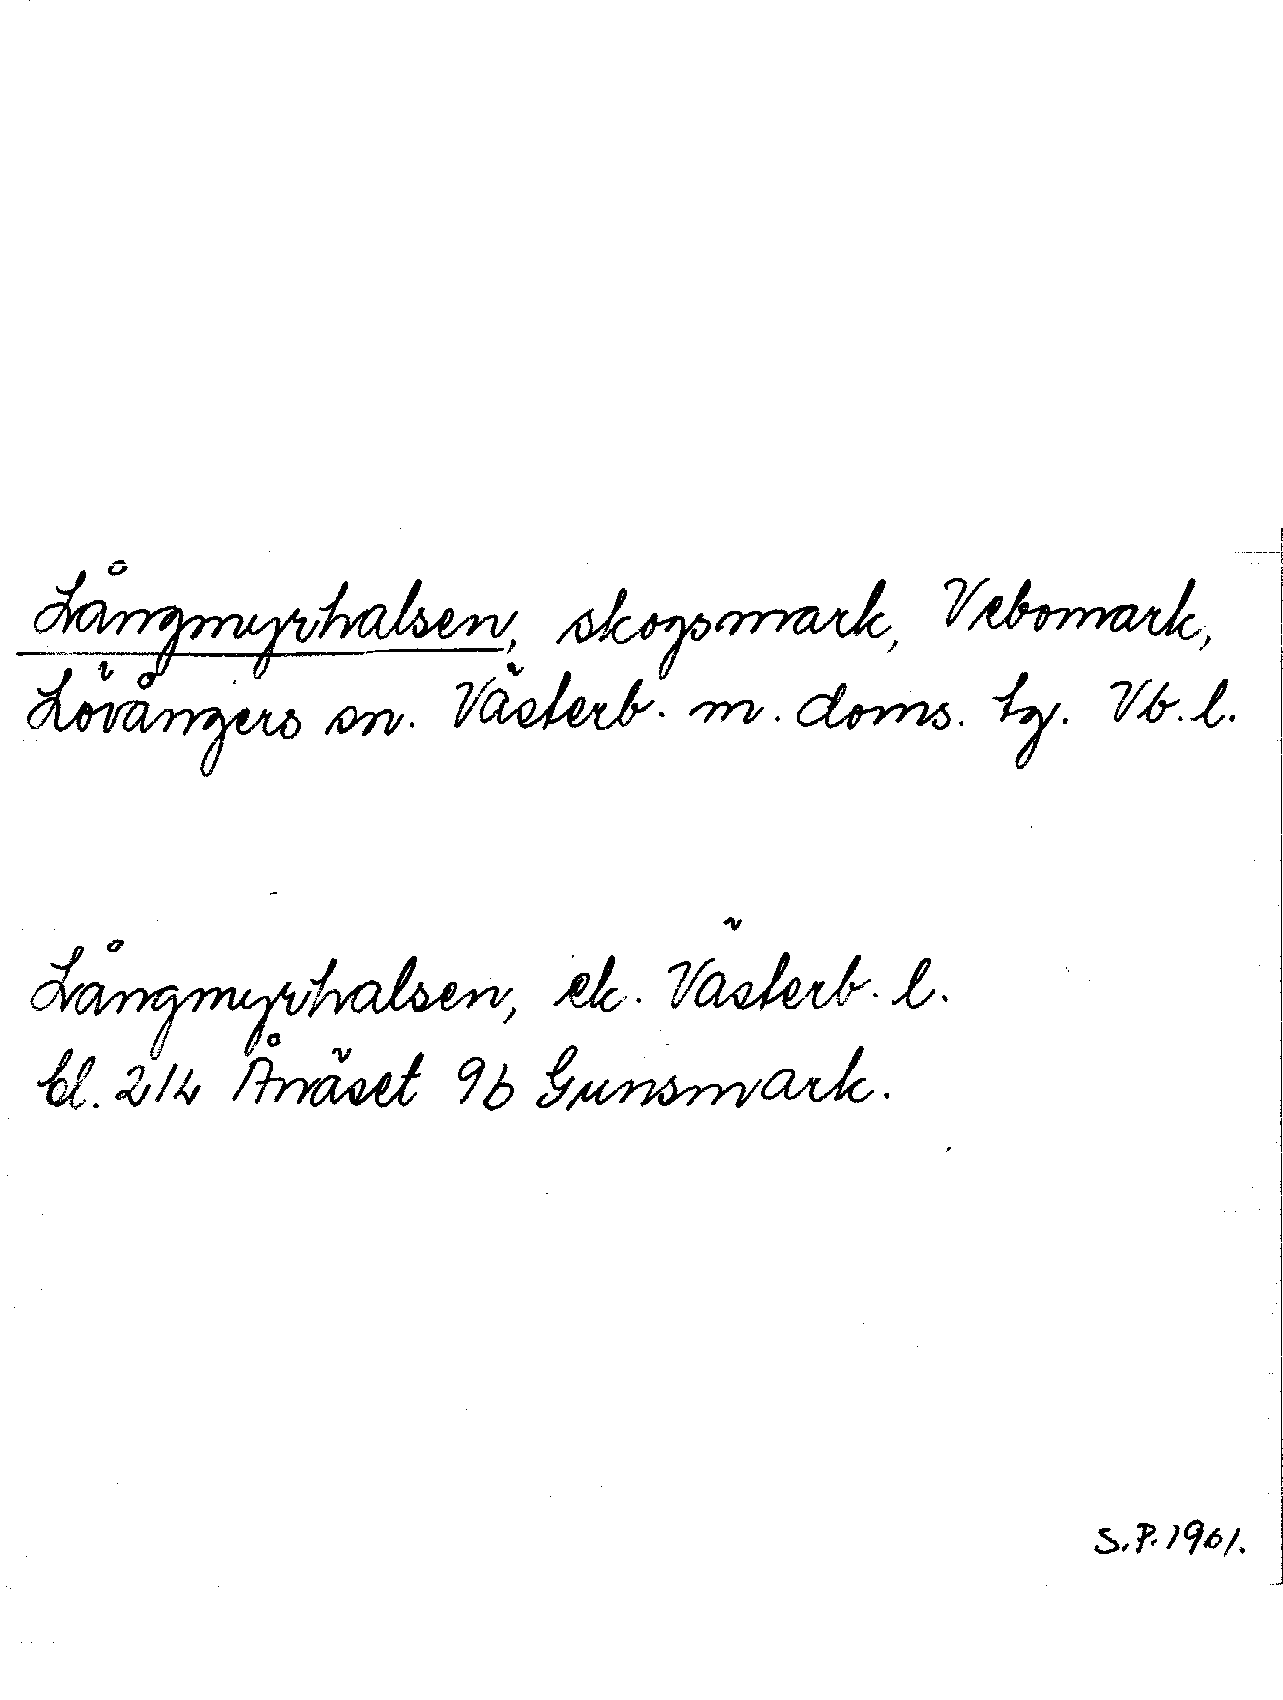 Långmyrhalsen, skogsmark, Vebomark,
Lövångers sn. Västerb. m. doms. tg. Vb. l.
Långmyrhalsen, ek. Västerb. l.
bl. 214 Ånäset 9b Gunsmark.
S.P. 1961.